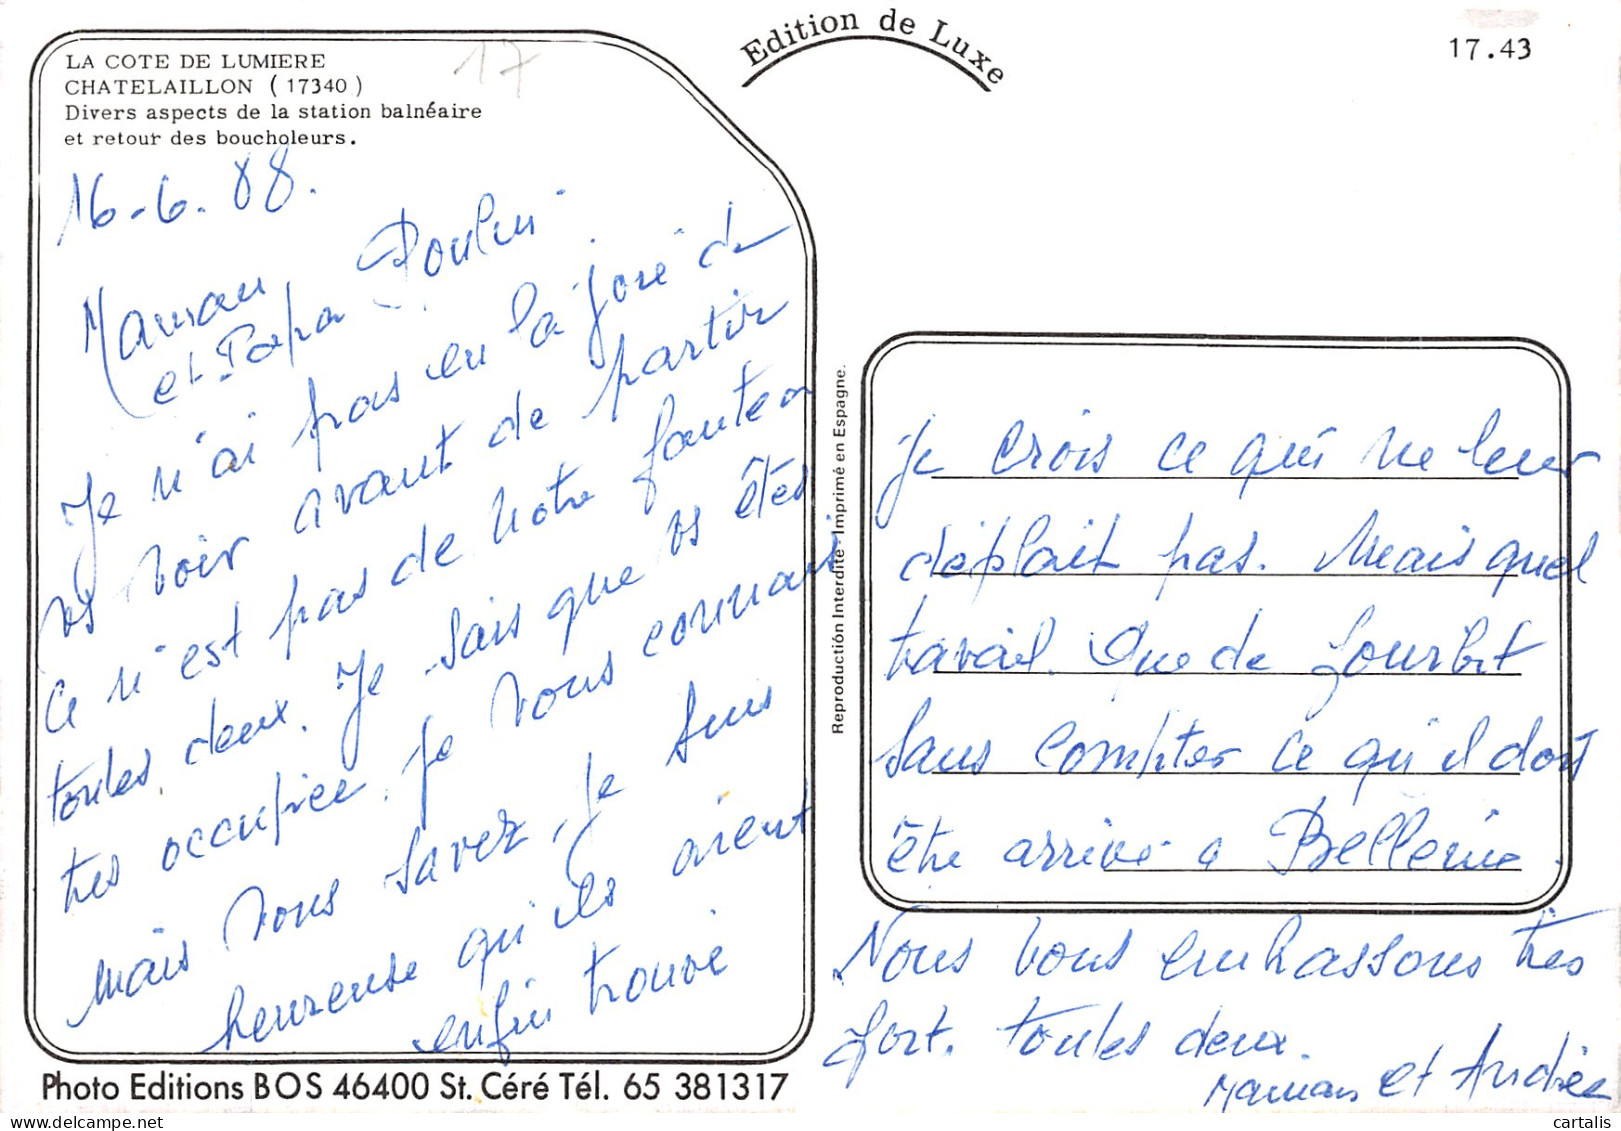 LA COTE DE LUMIERE
CHATELAILLON ( 17340 )
Divers aspects de la station balnéaire
et retour des boucholeurs.
17
Edition de Luxe
17.43
16-6.88.
Maman
et Papa Poulin
Je n'ai pas eu la joie de
vs voir avant de partir
Ce n'est pas de notre faute à
toutes deux. Je sais que vs êtes
très occupée. Je vous connais
mais vous savez, je suis
heureuse qu'ils aient
enfin trouvé
Reproduction Interdite - Imprimé en Espagne.
Je crois ce qui ne leur
déplait pas. Mais quel
travail. Que de
sans compter ce qu'il doit
être arrivé à
Nous vous embrassons très
fort. toutes deux.
Maman et Andrée
Photo Editions BOS 46400 St. Céré Tél. 65 381317
cartalis
delcampe.net